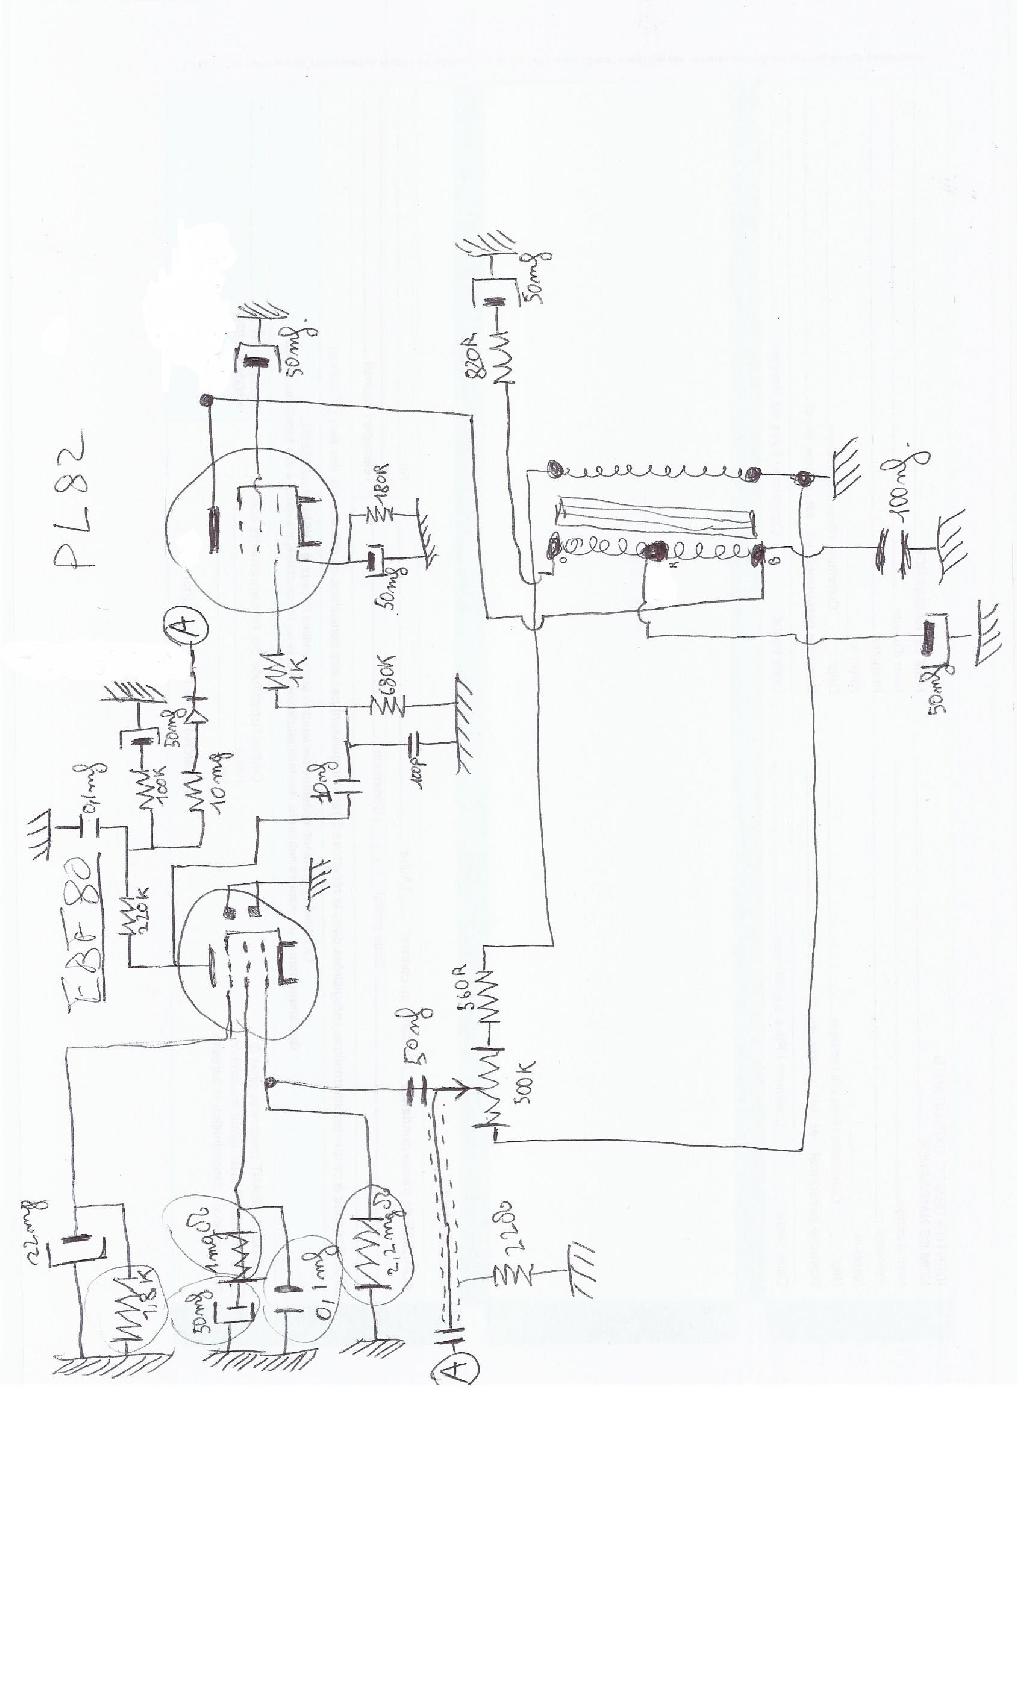 PL82
EBF80
22mf
1,8K
50mf
1mgΩ
0,1mf
2,2mgΩ
A
220K
0,1mf
100K
50mf
10mf
A
10nf
100p
680K
1K
50mf
180R
50mf.
50nf
500K
560R
220Ω
820R
50mf
O
B
100nf.
50mf